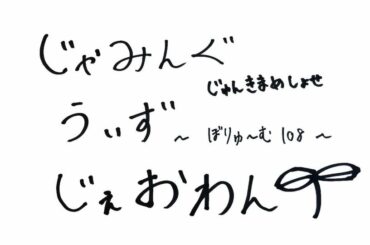 じゃみんぐ
じゅんきまめしょせ
うぃず ～ ぼりゅ～む 108 ～
じぇおわん